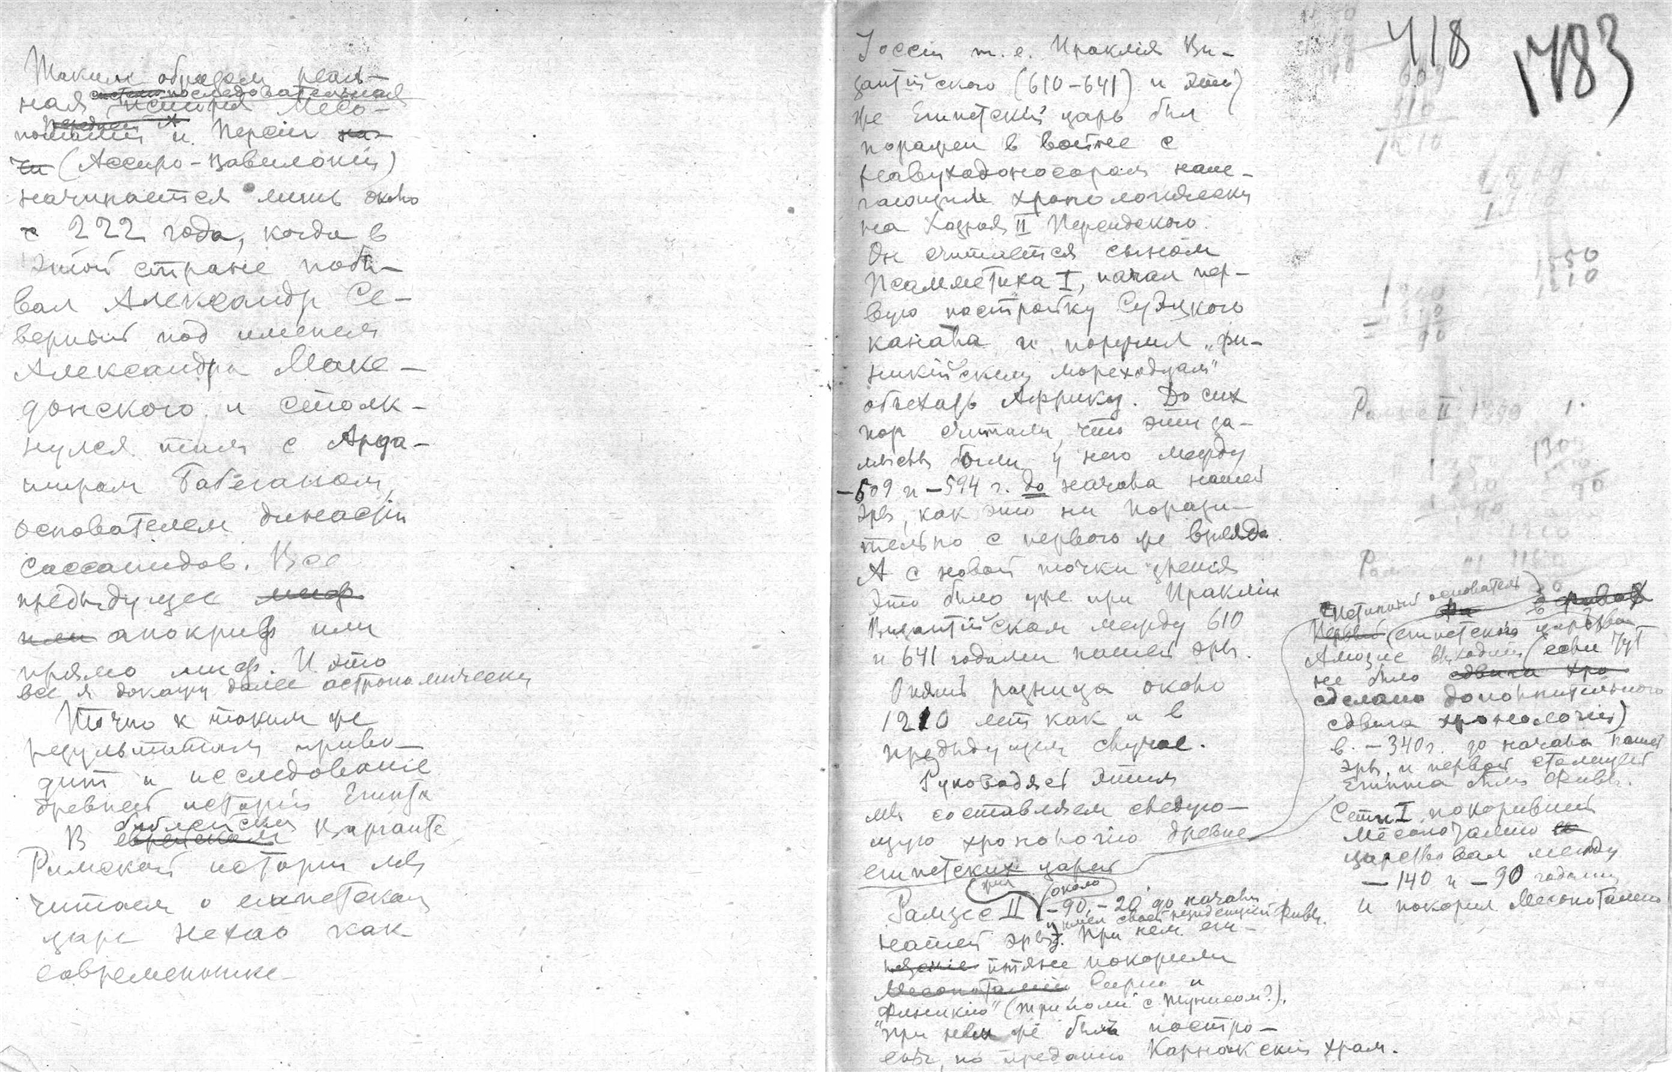 Таким образом реаль-
ная последовательная
история Месо-
потамии и Персии
(Ассиро-Вавилонии)
начинается лишь около
с 222 года, когда в
этой стране побы-
вал Александр Се-
верный под именем
Александра Маке-
донского и столк-
нулся там с Арда-
широм Бабеганом,
основателем династии
сассанидов. Все
предыдущее миф
или апокриф или
прямо миф. И это
все я докажу далее астрономически
Точно к таким же
результатам приво-
дит и исследование
древней истории Египта
В библейском варианте
еврейском
Римской истории мы
читаем о египетском
царе Нехао как
современнике
718 1783
Иоссии т. е. Ираклия Ви-
зантийского (610-641) и этот
же Египетский царь был
поражен в войне с
Навуходоносором нале-
гающим хронологически
на Хозроя II Персидского.
Он считается сыном
Псамметиха I, начал пер-
вую постройку Суэцкого
канала и поручил „фи-
никийским мореходцам"
объехать Африку. До сих
пор считали, что эти за-
мыслы были у него между
-609 и -594 г. до начала нашей
эры, как это ни порази-
тельно с первого же взгляда.
А с новой точки зрения
Это было уже при Ираклии
Византийском между 610
и 641 годами нашей эры.
Опять разница около
1210 лет как и в
предыдущем случае.
Руководясь этим
мы составляем следую-
щую хронологию древне
египетских царей
Рамзес II около -90, -20 до начала
имел своей резиденцией Фивы.
нашей эры. При нем еги-
птяне покорили
Месопотамию Сирию и
Финикию" (Триполи с Тунисом?).
"При нем же был постро-
ен, по преданию Карнакский храм.
Истинный основатель
Первый египетского царства
Амозис выходит (если тут
не было сдвига хро
сделано дополнительного
сдвига хронологии)
в -340 г. до начала нашей
эры, и первой столицей
Египта были Фивы.
Сети I, покоривший
Месопотамию
царствовал между
-140 и -90 годами
и покорил Месопотамию